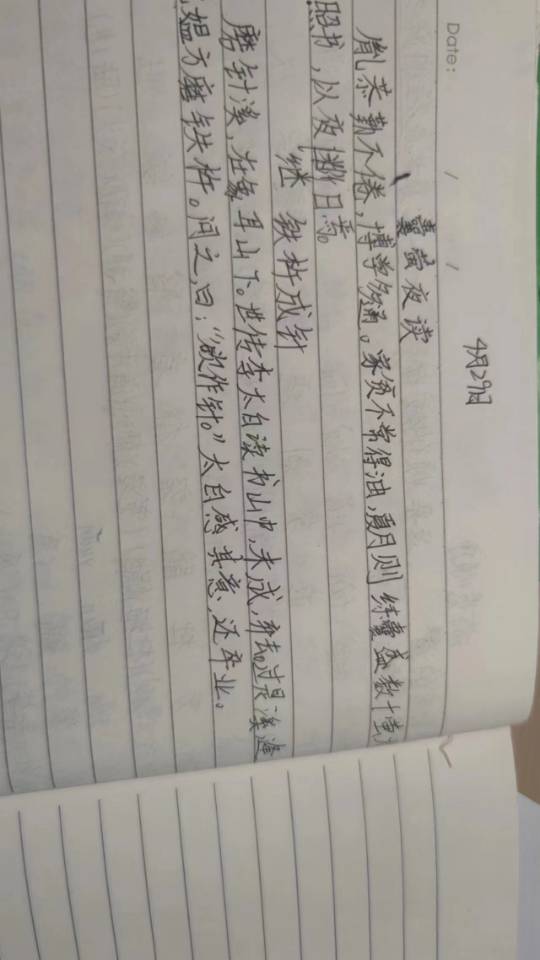 Date: / /
4月29日
囊萤夜读
胤恭勤不倦，博学多通。家贫不常得油，夏月则练囊盛数十萤
照书，以夜继日焉。
铁杵成针
磨针溪，在象耳山下。世传李太白读书山中，未成，弃去。过是溪，逢
媪方磨铁杵。问之，曰：“欲作针。”太白感其意，还卒业。